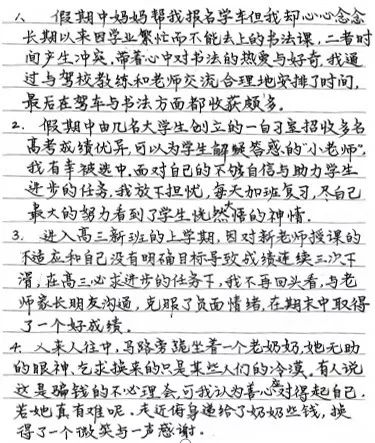 1、 假期中妈妈帮我报名学车但我却心心念念
长期以来因学业繁忙而不能去上的书法课,二者时
间产生冲突,带着心中对书法的热爱与好奇,我通
过与驾校教练和老师交流合理地安排了时间,
最后在驾车与书法方面都收获颇多。
2. 假期中由几名大学生创立的一自习室招收多名
高考成绩优异,可以为学生解疑答惑的“小老师”,
我有幸被选中,面对自己的不够自信与助力学生
进步的任务,我放下担忧,每天加班复习,尽自己
最大的努力看到了学生恍然大悟的神情.
3. 进入高三新班的上学期,因对新老师授课的
不适应和自己没有明确目标导致成绩连续三次下
滑,在高三必求进步的任务下,我不再回头看,与老
师家长朋友沟通,克服了负面情绪,在期末中取得
了一个好成绩。
4. 人来人往中,马路旁跪坐着一个老奶奶,她无助
的眼神,乞求换来的只是某些人们的冷漠,有人说
这是骗钱的不必理会,可我认为善心应对得起自己.
若她真有难呢.走近俯身递给了奶奶些钱,换
得了一个微笑与一声感谢.